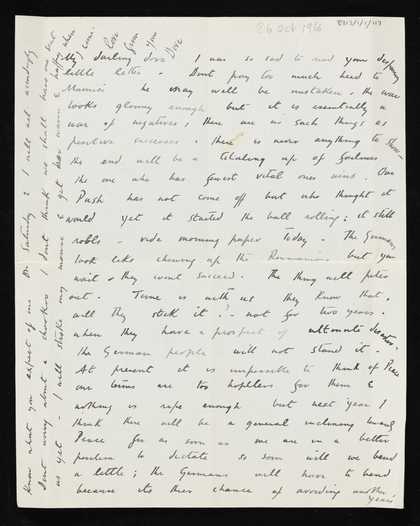 26 Oct 1916
My darling Dora I was so sad to read your
little letter. Don't pay too much heed to
he may well be mistaken. The war
looks gloomy enough but it is essentially a
war of negatives, there are no such things as
positive successes. There is never anything to show -
the end will be a totaling up of failures
the one who has fewest vital ones wins. Our
Push has not come off but who thought it
would yet it started the ball rolling; it still
rolls - vide morning paper today. The Germans
look like chewing up the Roumanians but you
wait & they wont succeed. The thing will peter
out. Time is with us they know that.
will they stick it? - not for two years.
when they have a prospect of ultimate
the German people will not stand it.
At present it is impossible to think of Peace
our terms are too hopeless for them &
nothing is ripe enough but next year I
think there will be a general inclining toward
Peace for as soon as we are in a better
position to dictate so soon will we bend
a little; the Germans will have to bend
because its their chance of avoiding another
years
know what you expect of me on Saturday & I will act accordingly
Dont worry about a I dont think we shall have one
us yet - I will stroke my mouse & get her warm & happy when
I come
Love from you
Dove